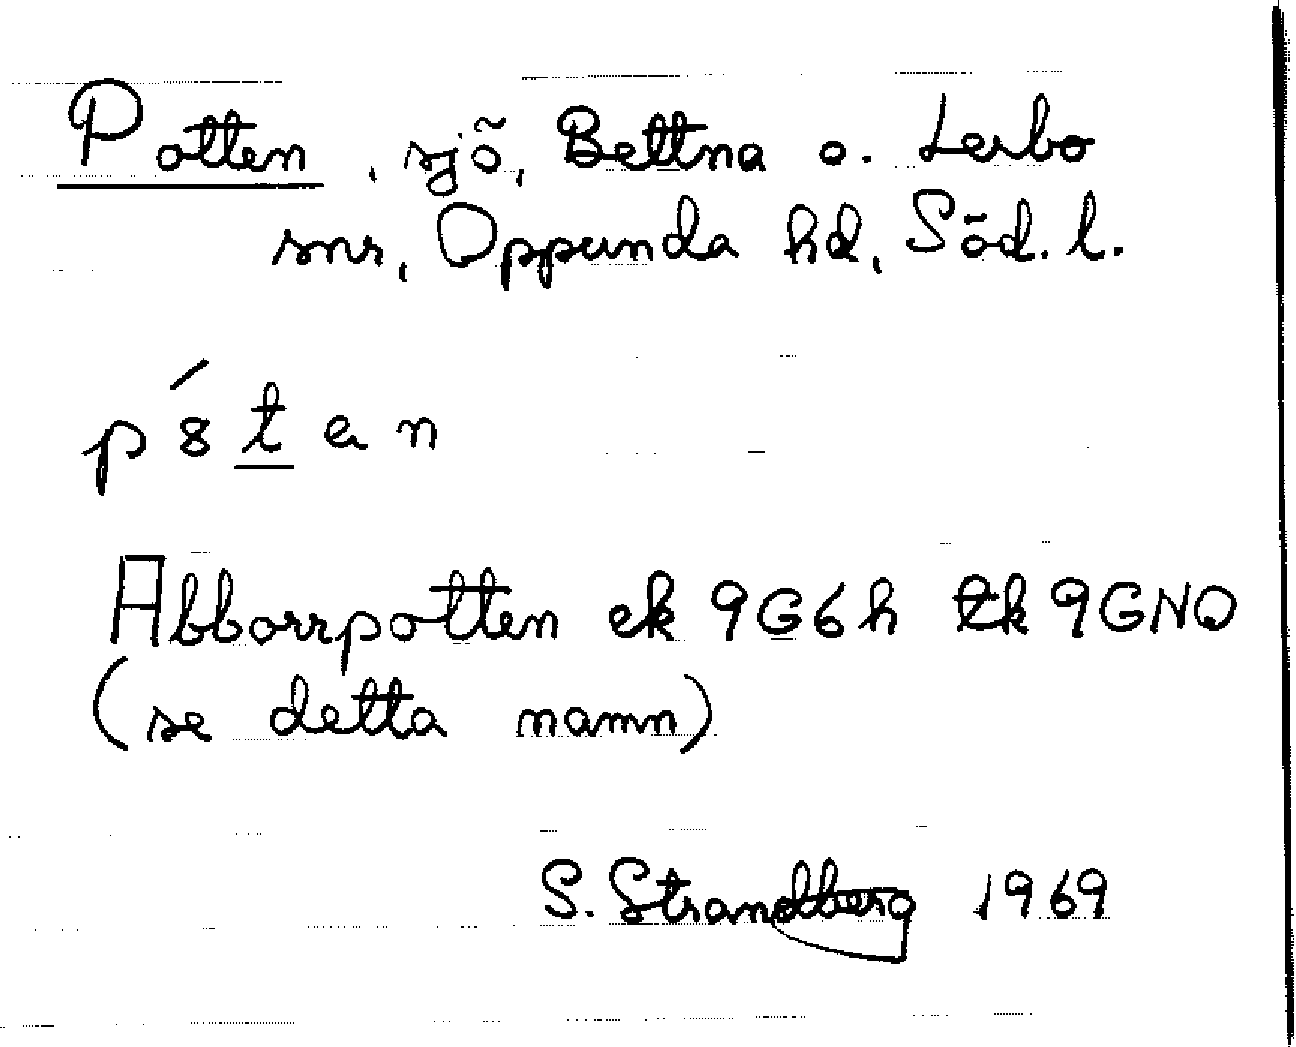 Potten, sjö, Bettna o. Lerbo
snr, Oppunda hd, Söd. l.
p 8́ t e n
Abborrpotten ek 9G6h tk 9GNO
(se detta namn)
S. Strandberg 1969